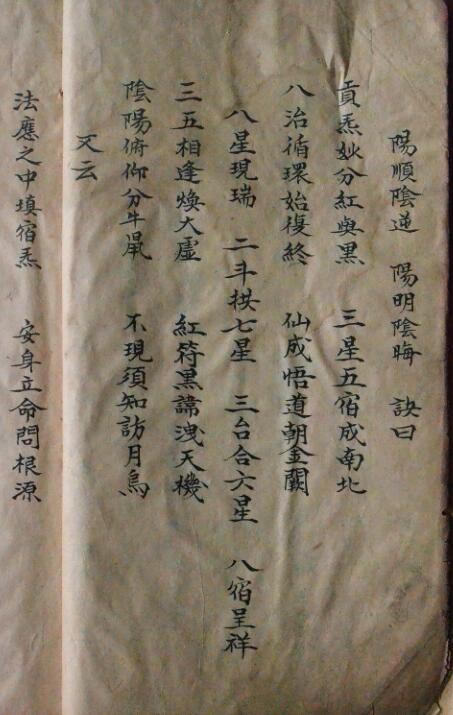 陽順陰逆　陽明陰晦　訣曰
貢炁妙分紅與黑　三星五宿成南北
八治循環始復終　仙成悟道朝金闕
八星現瑞　二斗拱七星　三台合六星　八宿呈祥
三五相逢煥大虛　紅符黑諱洩天機
陰陽俯仰分牛鼠　不現須知訪月烏
又云
法應之中填宿炁　安身立命問根源